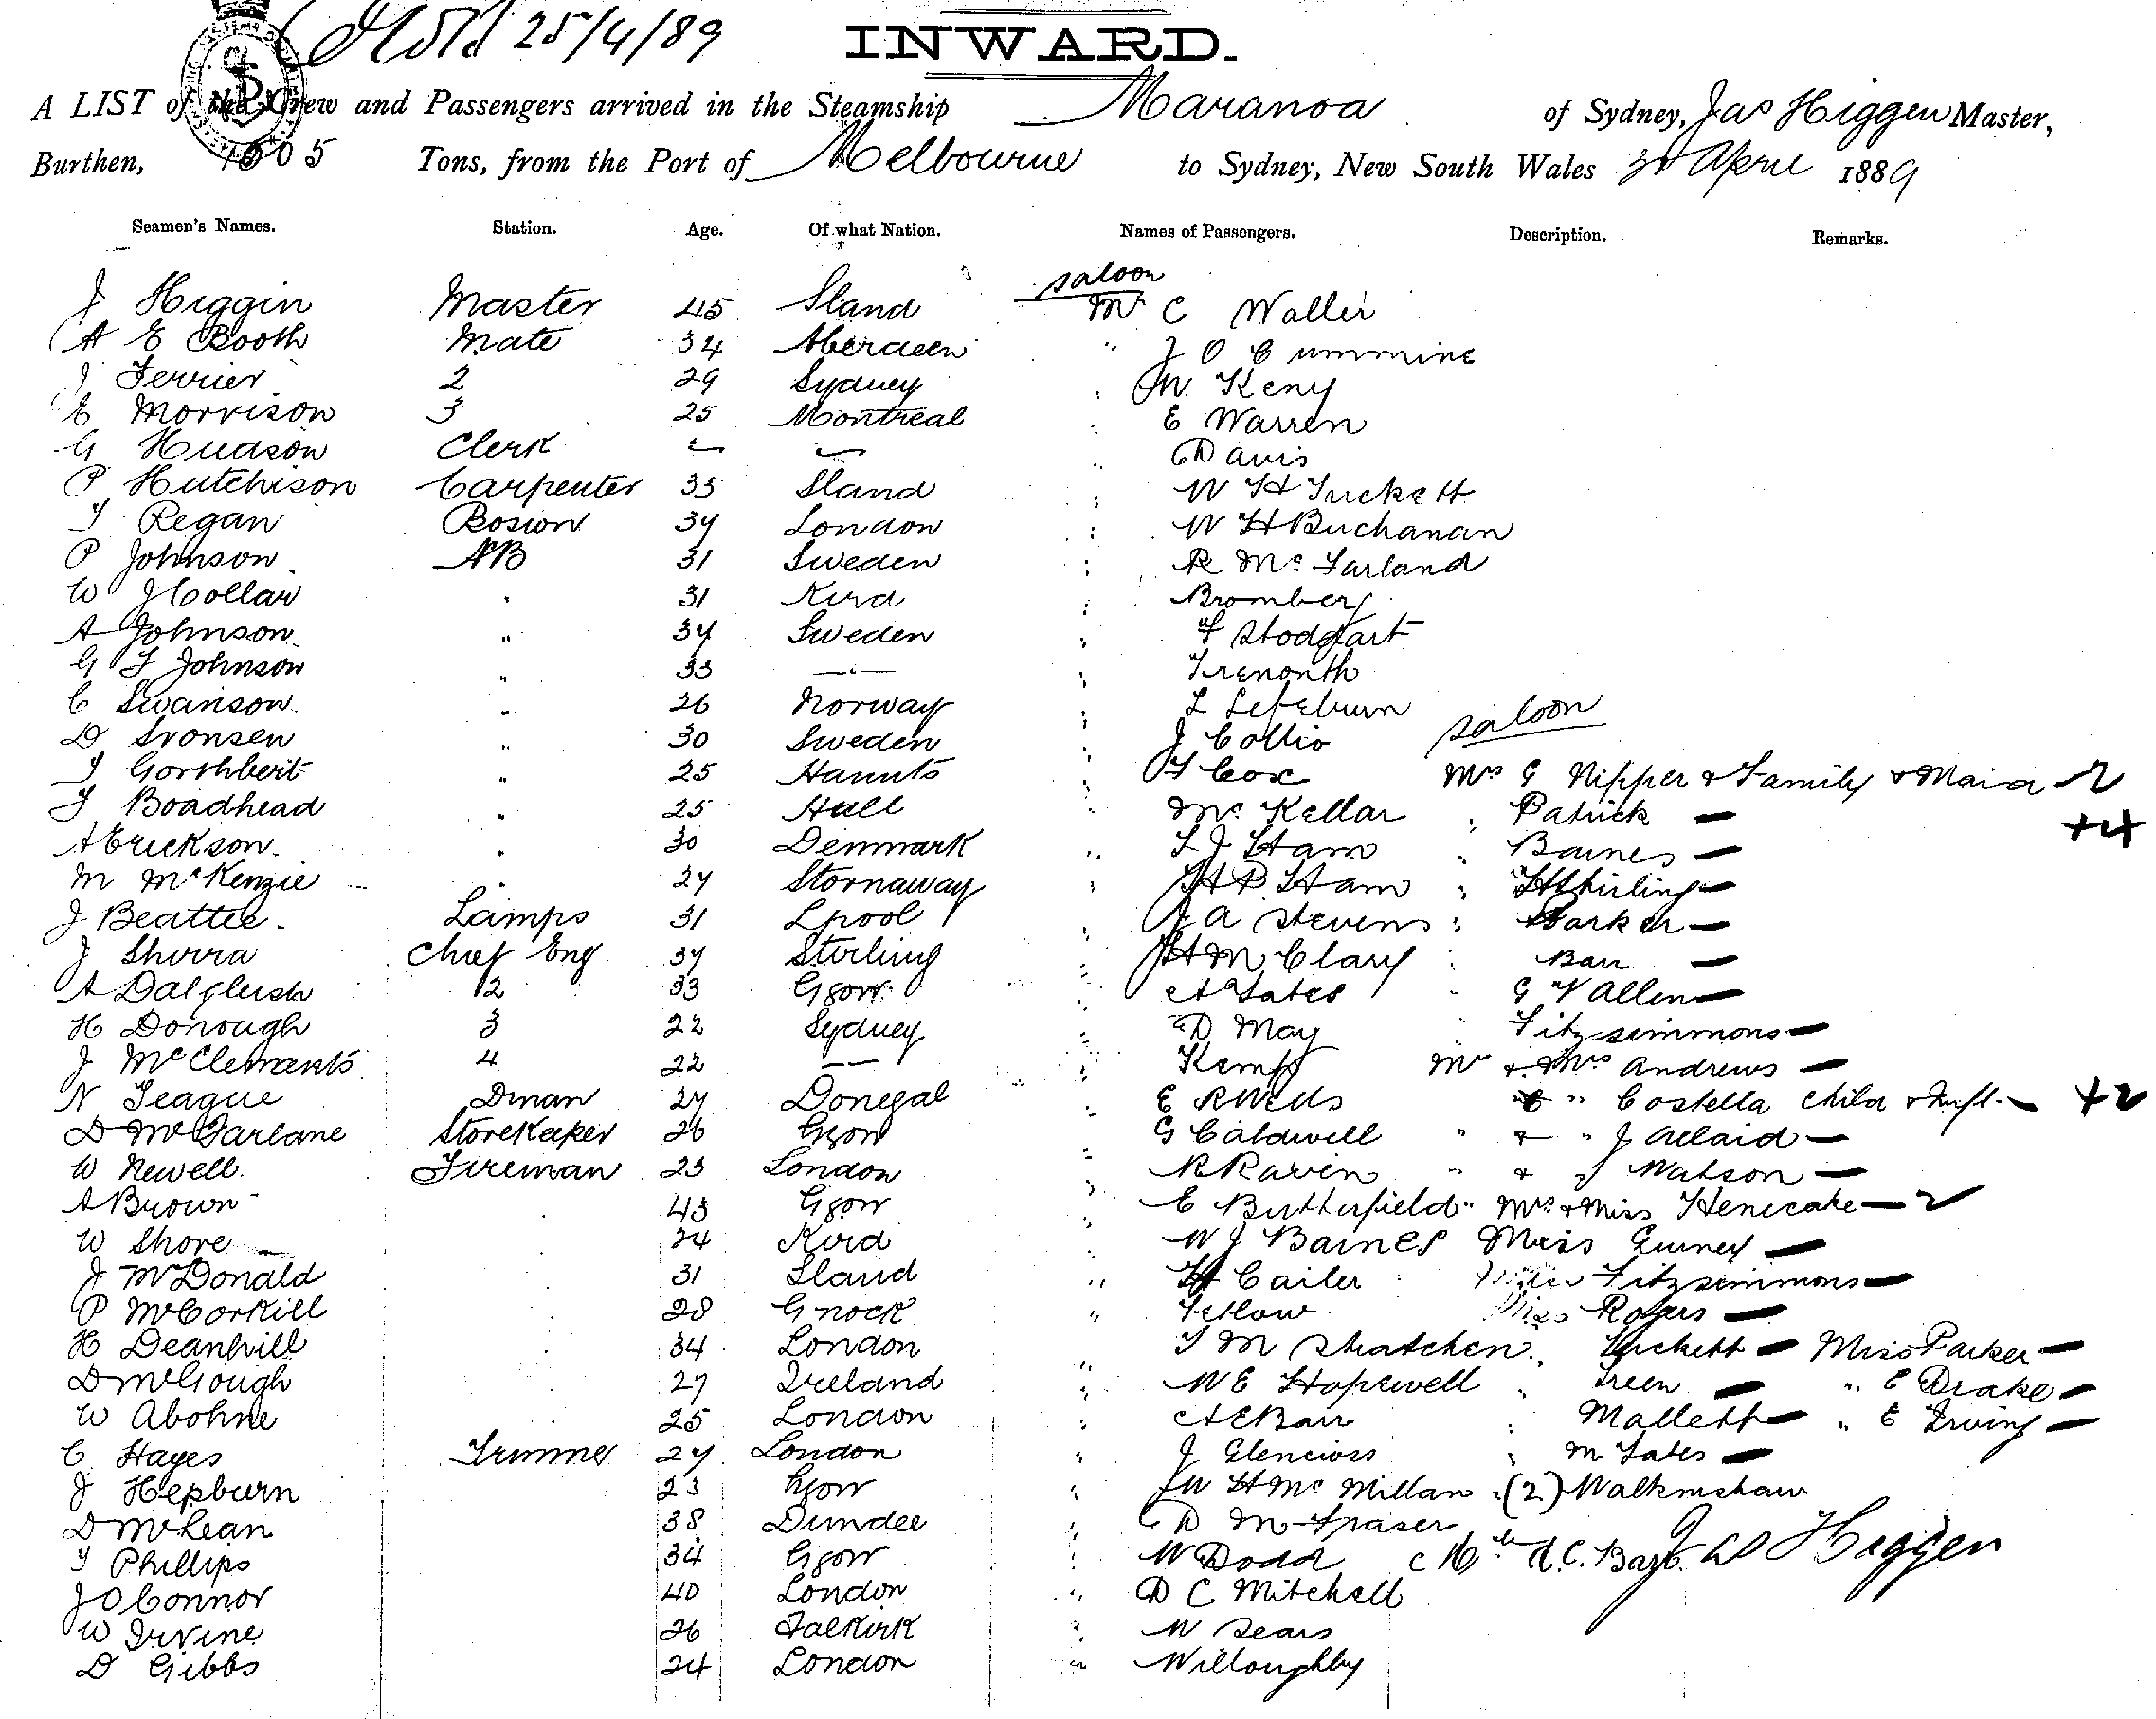 25/4/89
INWARD.
A LIST of the Crew and Passengers arrived in the Steamship Maranoa of Sydney, Jas Higgen Master,
Burthen, 1505 Tons, from the Port of Melbourne to Sydney, New South Wales April 1889
Seamen's Names. Station. Age. Of what Nation. Names of Passengers. Description. Remarks.
saloon
J Higgin Master 45 Sland Mr C Waller
A E Booth Mate 34 Aberdeen " J O Cummine
J Ferrier 2 29 Sydney W. Keny
E Morrison 3 25 Montreal E Warren
G Hudson Clerk Davis
P Hutchison Carpenter 35 Sland W H Tuckett
T Regan Boswn 34 London W H Buchanan
P Johnson AB 31 Sweden R Mc Farland
W J Collar 31 Kird Bromberg
A Johnson " 34 Sweden F Stoddart
G F Johnson " 33 — Trenonth
C Swanson " 26 Norway L Lefeburn saloon
D Svonsen " 30 Sweden J Collio
T " 25 Haunts T Cox Mrs G Nipper & Family & Maid
T Boadhead " 25 Hull Mc Kellar Patrick — +4
A Erickson 30 Denmark L J Ham Baines —
M McKenzie 24 Stornaway H B Ham Stirling —
J Beattie Lamps 31 Lpool J A Stevens Parker —
J Shirra Chief Eng 34 Stirling H M Clary Barr —
A Dalgleish 2 33 Gsow A Yates G V Allen —
H Donough 3 22 Sydney D May Fitzsimmons —
J McClements 4 22 — Kemp Mr & Mrs Andrews —
N Teague Dman 24 Donegal E R Wells " Costella Child & Inft — +2
D McFarlane Storekeeper 26 Gsow G Caldwell " & " J Allaid —
W Newell Fireman 23 London R Raven " & " Watson —
A Brown 43 Gsow E Butterfield " Mrs & Miss Henecake —
W Shore 24 Kird W J Baines Miss Gurney —
J McDonald 31 Sland H Cailer Fitzsimmons —
P McCorkill 28 Gnock Tetlow Miss Rogers —
H Deanhill 34 London T M Strachen Tuckett — Miss Parker —
D McGough 27 Ireland W E Hopewell Green — " E Drake —
W Abohne 25 London A E Barr Mallett — " E Irving —
C Hayes Trimmer 24 London J Glencross M Yates —
J Hepburn 23 Gsow W H Mc Millan (2) Walkinshaw
D McLean 38 Dundee D M Fraser
T Phillips 34 Gsow W Dodd Jas Higgen
J O Connor 40 London D C Mitchell
W Irvine 26 Falkirk W Sears
D Gibbs 24 London Willoughby